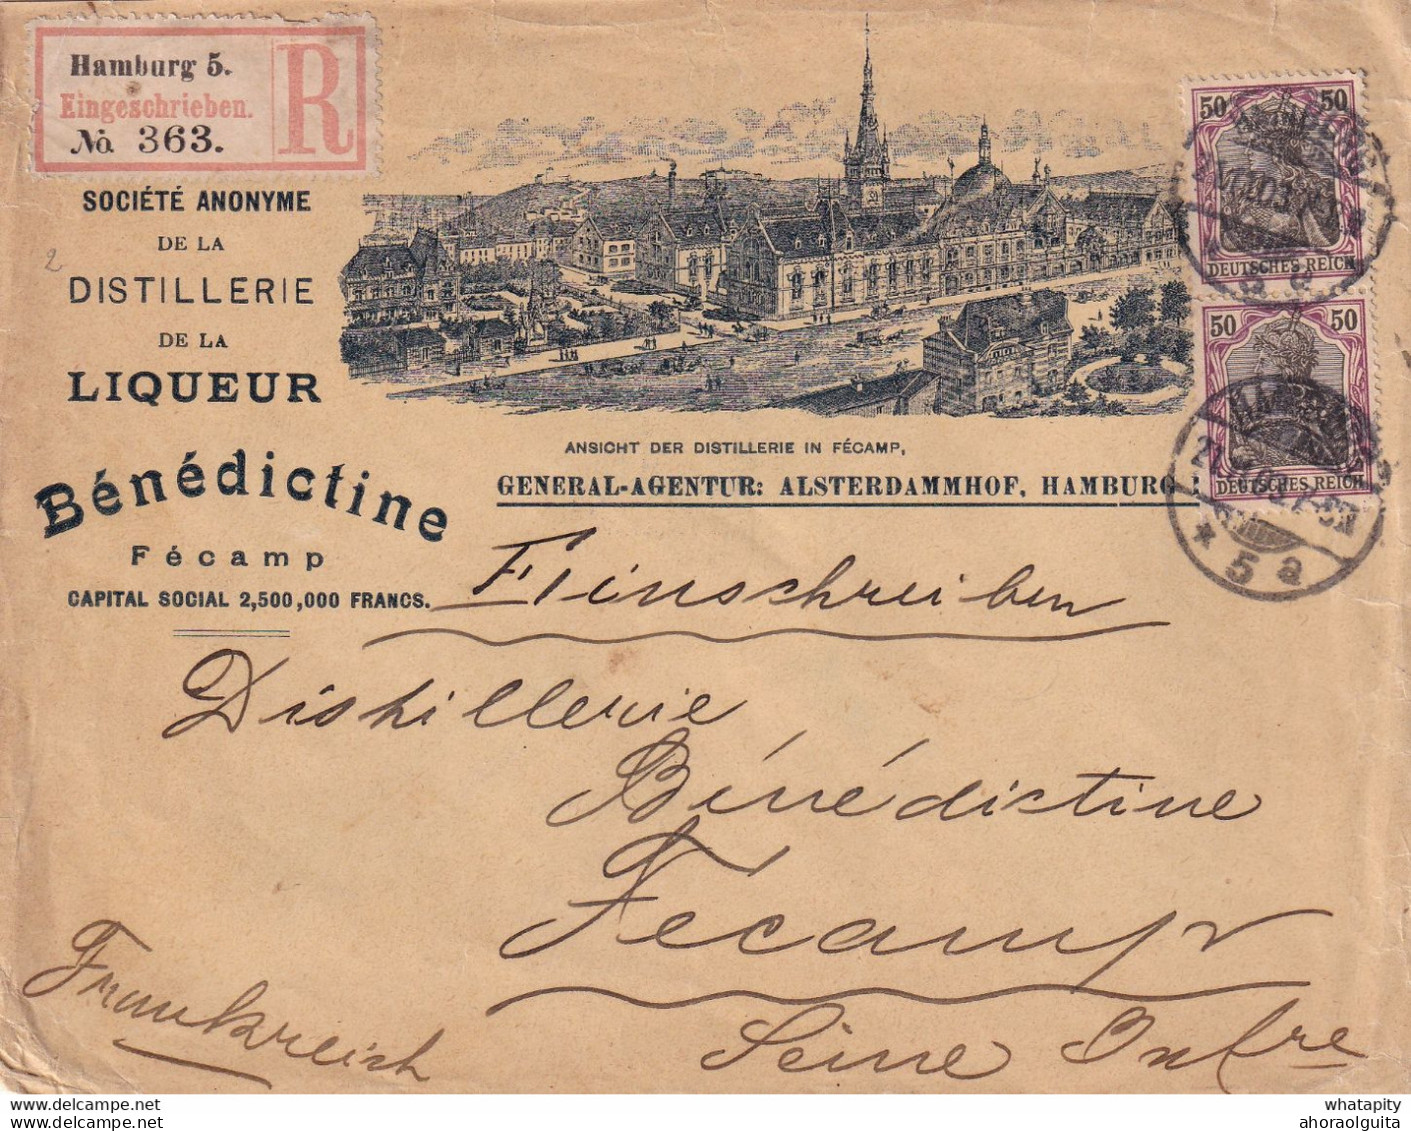 Hamburg 5.
Eingeschrieben.
No 363.
R
SOCIÉTÉ ANONYME
DE LA
DISTILLERIE
DE LA
LIQUEUR
Bénédictine
Fécamp
CAPITAL SOCIAL 2,500,000 FRANCS.
2
ANSICHT DER DISTILLERIE IN FÉCAMP,
GENERAL-AGENTUR: ALSTERDAMMHOF, HAMBURG
50 50
DEUTSCHES REICH
50 50
DEUTSCHES REICH
HAMBURG
* 5 a
Einschreiben
Distillerie
Bénédictine
Fécamp
Seine Infre
Frankreich
Delcampe.net
delcampe.net
whatapity
ahoraolguita